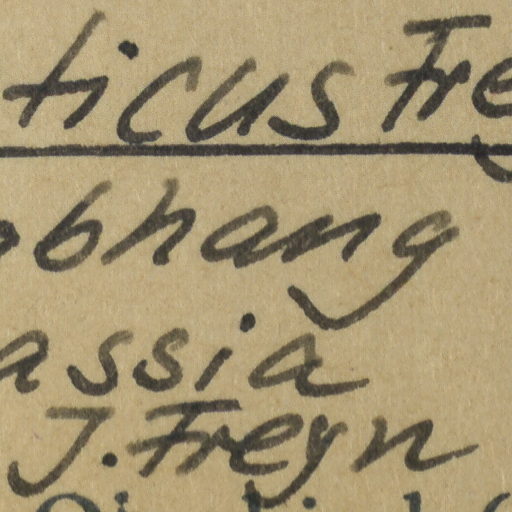 ticus Fre
obhang
assia
J. Freyn